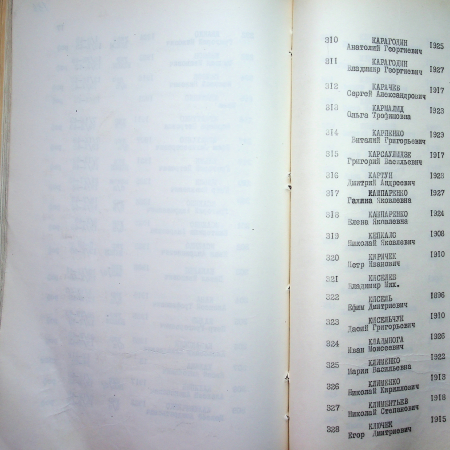 310 КАРАГОДИН 1925
Анатолий Георгиевич
311 КАРАГОДИН 1927
Владимир Георгиевич
312 КАРАЧЕВ 1917
Сергей Александрович
313 1923
Ольга Трофимовна
314 КАРПЕНКО 1929
Виталий Григорьевич
315 1917
Григорий Васильевич
316 КАРТУН 1928
Дмитрий Андреевич
317 КАШПАРЕНКО 1927
Галина Яковлевна
318 КАШПАРЕНКО 1924
Елена Яковлевна
319 КЕПКАЛО 1908
Николай Яковлевич
320 КИРИЧЕК 1910
Петр Иванович
321 КИСЕЛЕВ
Владимир Них.
322 КИСЕЛЬ 1896
Ефим Дмитриевич
323 КИСЕЛЬЧУК 1910
Григорьевич
324 1926
Иван Моисеевич
325 КЛИМЕНКО 1922
Мария Васильевна
326 КЛИМЕНКО 1913
Николай Кириллович
327 КЛИМЕНТЬЕВ 1918
Николай Степанович
328 КЛЮЧЕК 1915
Егор Дмитриевич